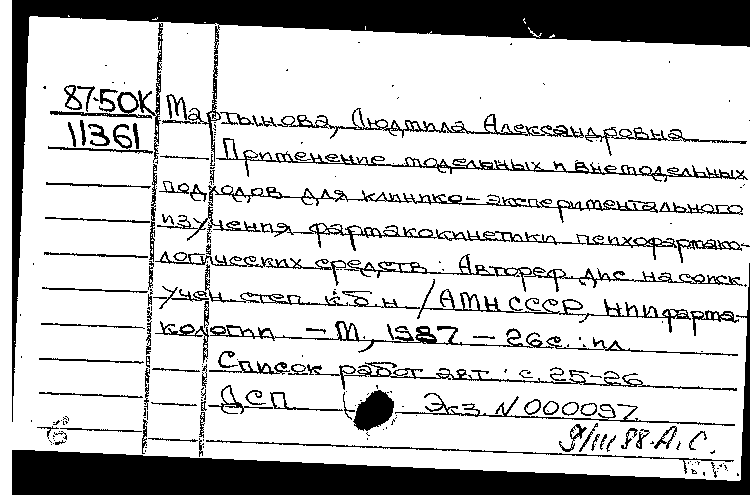 87-50К Мартынова, Людмила Александровна
11361 Применение модельных и внемодельных
подходов для клинико-экспериментального
изучения фармакокинетики психофармако-
логических средств : Автореф дис на соиск.
учен степ к.б.н / АМН СССР, НИИ фарма-
кологии - М, 1987 - 26с. : ил
Список работ авт : с. 25-26
ДСП Экз. N 000097
9/III 88. А. С.